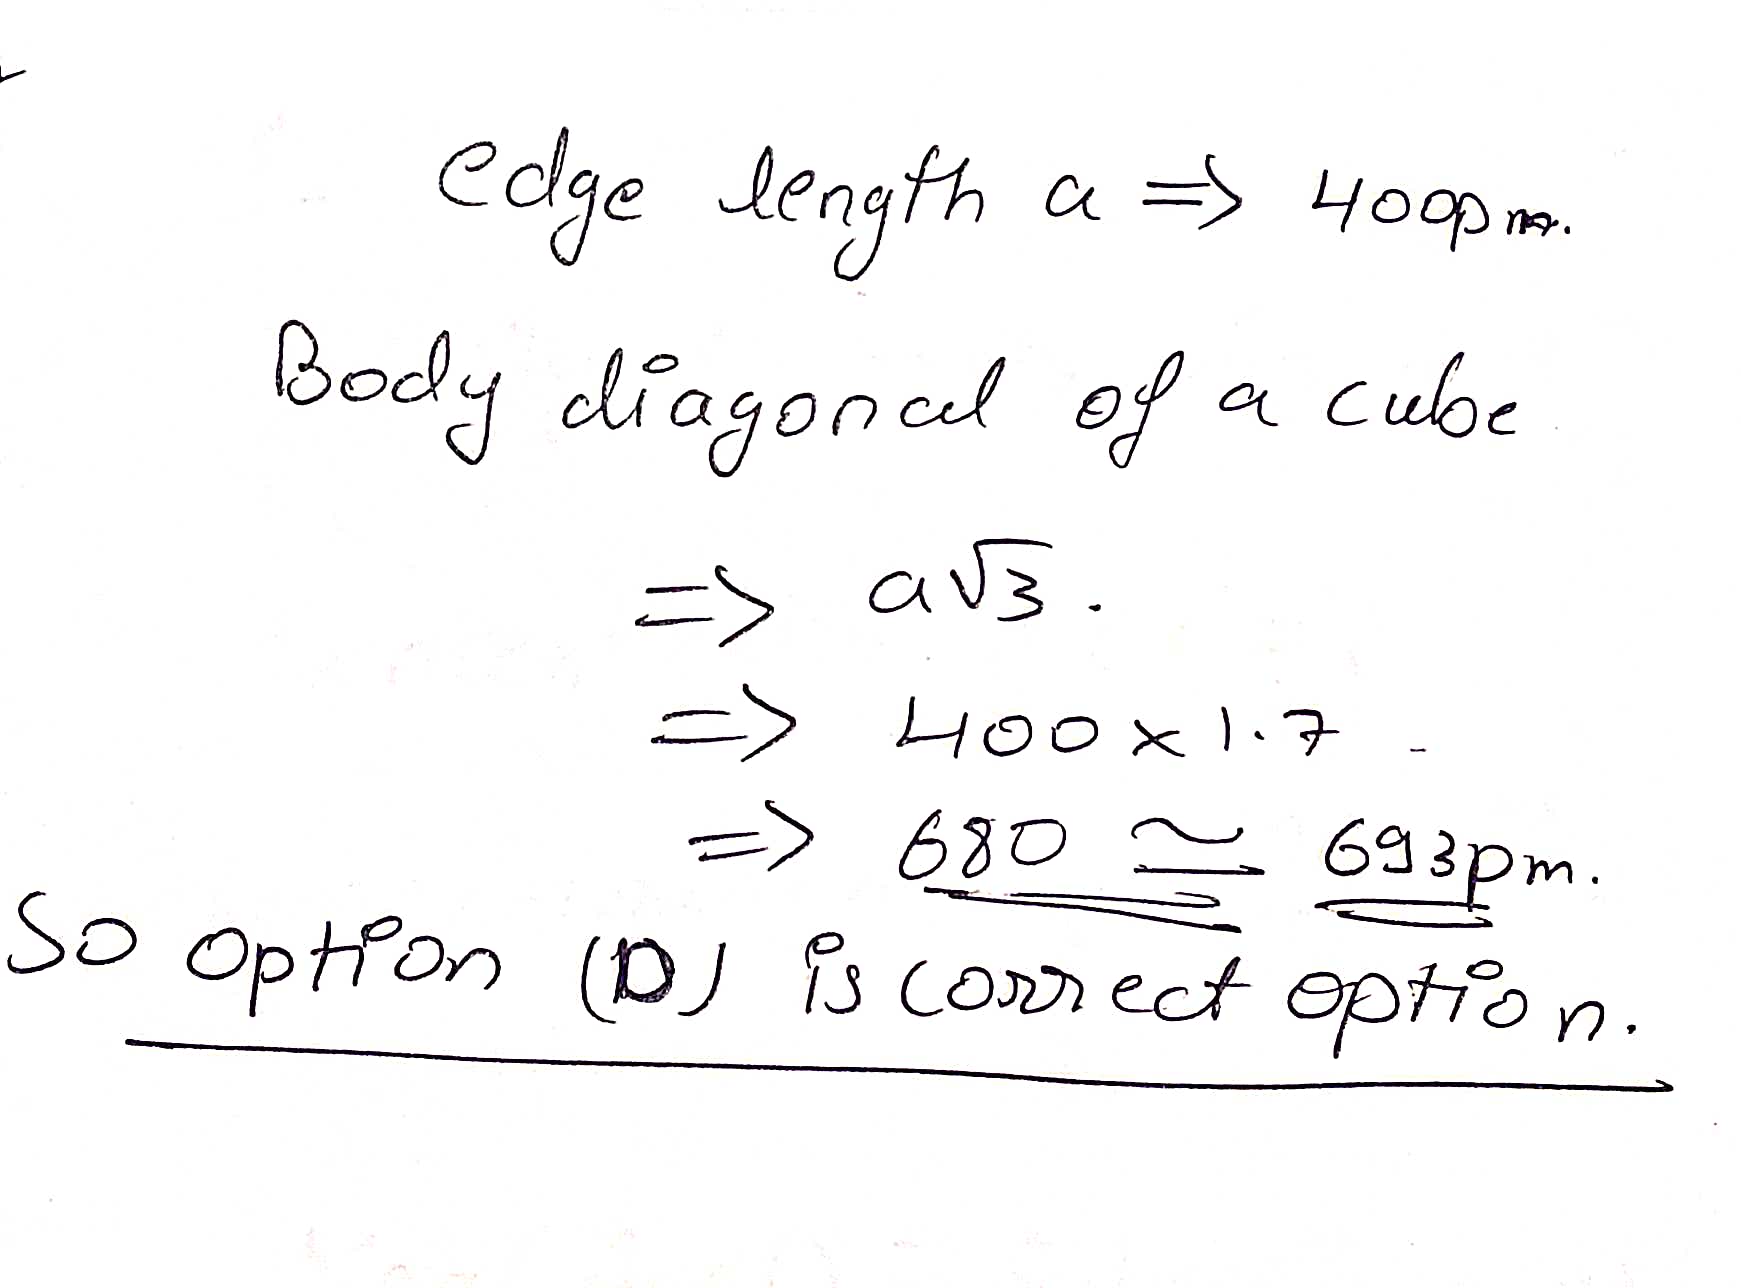 edge length a => 400pm.
Body diagonal of a cube
=> a√3.
=> 400 x 1.7 -
=> 680 ≅ 693pm.
So option (D) is correct option.